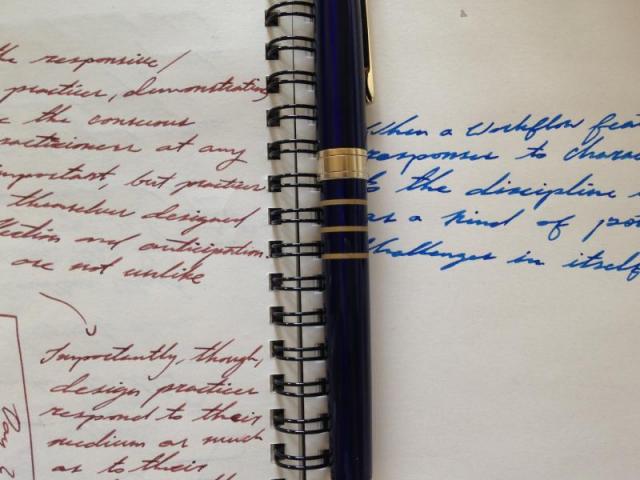 the responsive/
practices, demonstrating
the conscious
practitioners at any
important, but practices
themselves designed
and anticipation.
are not unlike
Importantly, though,
design practices
respond to their
medium as much
as to their
Day 2
When a Workflow
responses to
to the discipline
as a kind of
challenges in itself